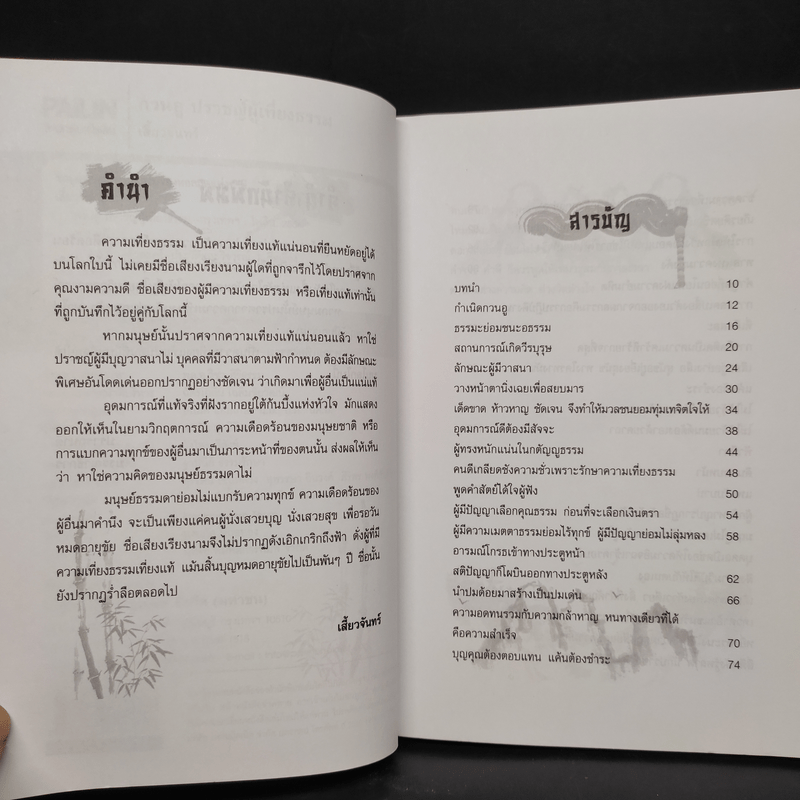 คำนำ
ความเที่ยงธรรม เป็นความเที่ยงแท้แน่นอนที่ยืนหยัดอยู่ได้
บนโลกใบนี้ ไม่เคยมีชื่อเสียงเรียงนามผู้ใดที่ถูกจารึกไว้โดยปราศจาก
คุณงามความดี ชื่อเสียงของผู้มีความเที่ยงธรรม หรือเที่ยงแท้เท่านั้น
ที่ถูกบันทึกไว้อยู่คู่กับโลกนี้
หากมนุษย์นั้นปราศจากความเที่ยงแท้แน่นอนแล้ว หาใช่
ปราชญ์ผู้มีบุญวาสนาไม่ บุคคลที่มีวาสนาตามฟ้ากำหนด ต้องมีลักษณะ
พิเศษอันโดดเด่นออกปรากฏอย่างชัดเจน ว่าเกิดมาเพื่อผู้อื่นเป็นแน่แท้
อุดมการณ์ที่แท้จริงที่ฝังรากอยู่ใต้ก้นบึ้งแห่งหัวใจ มักแสดง
ออกให้เห็นในยามวิกฤตการณ์ ความเดือดร้อนของมนุษยชาติ หรือ
การแบกความทุกข์ของผู้อื่นมาเป็นภาระหน้าที่ของตนนั้น ส่งผลให้เห็น
ว่า หาใช่ความคิดของมนุษย์ธรรมดาไม่
มนุษย์ธรรมดาย่อมไม่แบกรับความทุกข์ ความเดือดร้อนของ
ผู้อื่นมาคำนึง จะเป็นเพียงแค่คนผู้นั่งเสวยบุญ นั่งเสวยสุข เพื่อรอวัน
หมดอายุขัย ชื่อเสียงเรียงนามจึงไม่ปรากฏดังเอิกเกริกถึงฟ้า ดั่งผู้ที่มี
ความเที่ยงธรรมเที่ยงแท้ แม้นสิ้นบุญหมดอายุขัยไปเป็นพันๆ ปี ชื่อนั้น
ยังปรากฏร่ำลือตลอดไป
เสี้ยวจันทร์
สารบัญ
บทนำ 10
กำเนิดกวนอู 12
ธรรมะย่อมชนะอธรรม 16
สถานการณ์เกิดวีรบุรุษ 20
ลักษณะผู้มีวาสนา 24
วางหน้าตานิ่งเฉยเพื่อสยบมาร 30
เด็ดขาด ห้าวหาญ ชัดเจน จึงทำให้มวลชนยอมทุ่มเทจิตใจให้ 34
อุดมการณ์ดีต้องมีสัจจะ 38
ผู้ทรงหนักแน่นในกตัญญูธรรม 44
คนดีเกลียดชังความชั่วเพราะรักษาความเที่ยงธรรม 48
พูดคำสัตย์ได้ใจผู้ฟัง 50
ผู้มีปัญญาเลือกคุณธรรม ก่อนที่จะเลือกเงินตรา 54
ผู้มีความเมตตาธรรมย่อมไร้ทุกข์ ผู้มีปัญญาย่อมไม่ลุ่มหลง 58
อารมณ์โกรธเข้าทางประตูหน้า
สติปัญญาก็โผบินออกทางประตูหลัง 62
นำปมด้อยมาสร้างเป็นปมเด่น 66
ความอดทนรวมกับความกล้าหาญ หนทางเดียวที่ได้
คือความสำเร็จ 70
บุญคุณต้องตอบแทน แค้นต้องชำระ 74